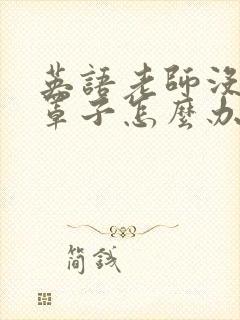 英語老師沒
罩子怎麼办
简銭